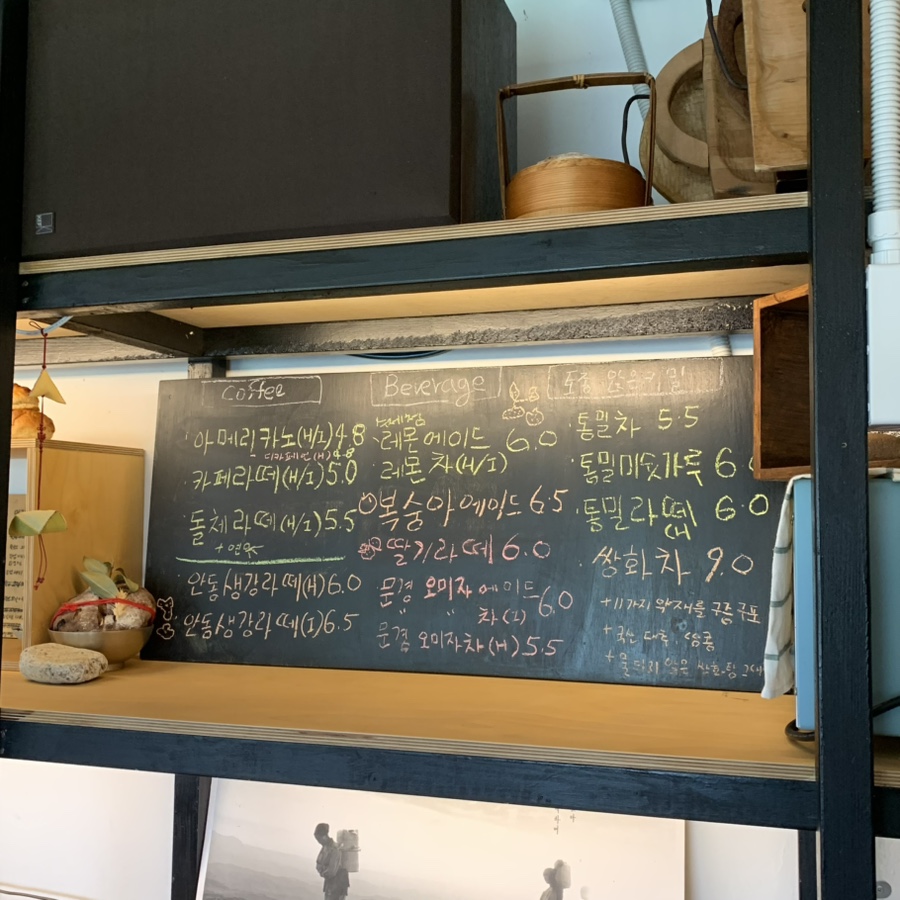 Coffee
아메리카노(H/I) 4.8
디카페인(H) 4.8
카페라떼(H/I) 5.0
돌체라떼(H/I) 5.5
+연유
안동생강라떼(H) 6.0
안동생강라떼(I) 6.5
Beverage
레몬에이드 6.0
레몬차(H/I)
복숭아에이드 6.5
딸기라떼 6.0
문경 오미자 에이드
" " 차(I) 6.0
문경 오미자차(H) 5.5
통밀차 5.5
통밀미숫가루 6.
통밀라떼 6.0
(H)
쌍화차 9.0
+11가지 약재를
+국산 대추,